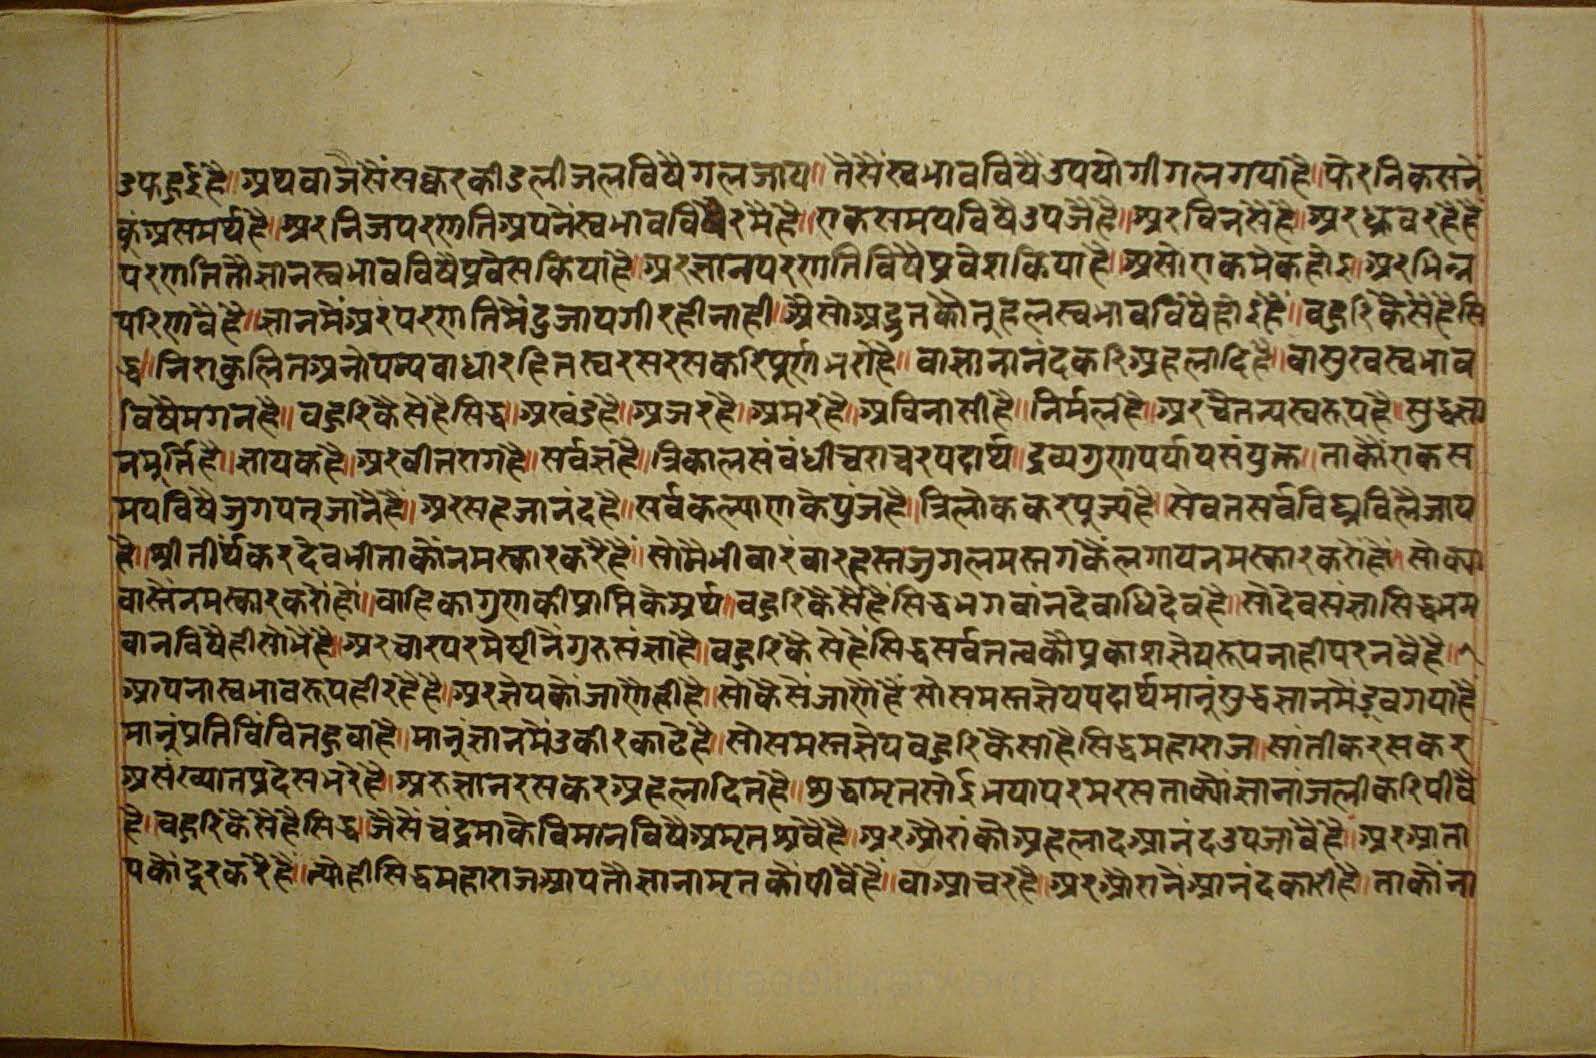 उफहुई है॥ अथवा जैसैं सक्करकी डली जल विषै गल जाय॥ तैसैं स्वभाव विषैं उपयोगी गल गया है॥ फेर निकसनें
कुं असमर्थ है॥ अर निज परणति अपनैं स्वभाव विषै रमै है॥ एक समय विषै उपजै है॥ अर विनसै है॥ अर ध्रुव रहै है
परणति तौ ज्ञान स्वभाव विषै प्रवेस किया है॥ अर ज्ञान परणति विषै प्रवेश किया है॥ असो एकमेक होइ॥ अर भिन्न
परिणवै है॥ ज्ञानमैं अरं परणतिमैं दुजायगी रही नाही॥ अैसो अद्भुत कौतुहल स्वभाव विषै होइ है॥ बहुरि कैसे है सि
द्ध॥ निराकुलित अनोपम्य बाधा रहित स्वरस रसकरि पुर्ण भरो है॥ वा ज्ञानानंद करि अहलादि है॥ वा सुख स्वभाव
विषै मगन है॥ बहुरि कैसे है सिद्ध॥ अखंड है॥ अजर है॥ अमर है॥ अविनासी है॥ निर्मल है॥ अर चैतन्य स्वरुप है॥ सुद्ध ज्ञा
न मुर्त्ति है॥ ज्ञायक है॥ अर वीतराग है॥ सर्वज्ञ है॥ त्रिकाल संबंधी चराचर पदार्थ॥ द्रव्य गुण पर्याय संयुक्त॥ ताकौं एक स
मय विषै जुगपत् जानै है॥ अर सहजानंद है॥ सर्व कल्याण के पुंज है॥ त्रिलोक कर पुज्य है॥ सेवत सर्व विघ्न विलै जाय
है॥ श्री तीर्थकर देव भी ताकौं नमस्कार करै है॥ सो मै भी बारंबार हस्त जुगल मस्तगकैं लगाय नमस्कार करों हों॥ सो क्या
वास्तैं नमस्कार करों हों॥ वाहिका गुण की प्राप्ति के अर्थ॥ बहुरि कैसै है सिद्ध भगवांन देवाधिदेव है॥ सो देव संज्ञा सिद्ध भग
वान विषै ही सोभै है॥ अर च्यार परमेष्टीनै गुरु संज्ञा है॥ बहुरि कैसे है सिद्ध सर्व तत्वकौ प्रकाश ज्ञेय रुप नाही परनवै है॥
आपना स्वभाव रुप ही रहै है॥ अर ज्ञेयकौ जाणै ही है॥ सो कैसैं जाणै है सो समस्त ज्ञेय पदार्थ मानुं सुद्ध ज्ञानमैं डूब गया है
मानुं प्रतिबिंबित हुवा है॥ मानुं ज्ञानमैं उकीर काढै है॥ सो समस्त ज्ञेय बहुरि कैसा है सिद्ध महाराज॥ सांतीक रस कर
असंख्यात प्रदेस भरे है॥ अरु ज्ञान रस कर अहल्लादित है॥ शुद्धामृत सोई भया परम रस ताक्यौं ज्ञानांजली करि पीवै
है॥ बहुरि कैसे है सिद्ध॥ जैसैं चंद्रमाकै विमान विषै अमृत श्रवै है॥ अर औरांकौ अहलाद आनंद उपजावै है॥ अर आता
पकौं दुर करै है॥ त्यौही सिद्ध महाराज आप तौ ज्ञानामृतकौ पीवै है॥ वा आचर है॥ अर औरानै आनंदकारी है॥ ताकौं ना